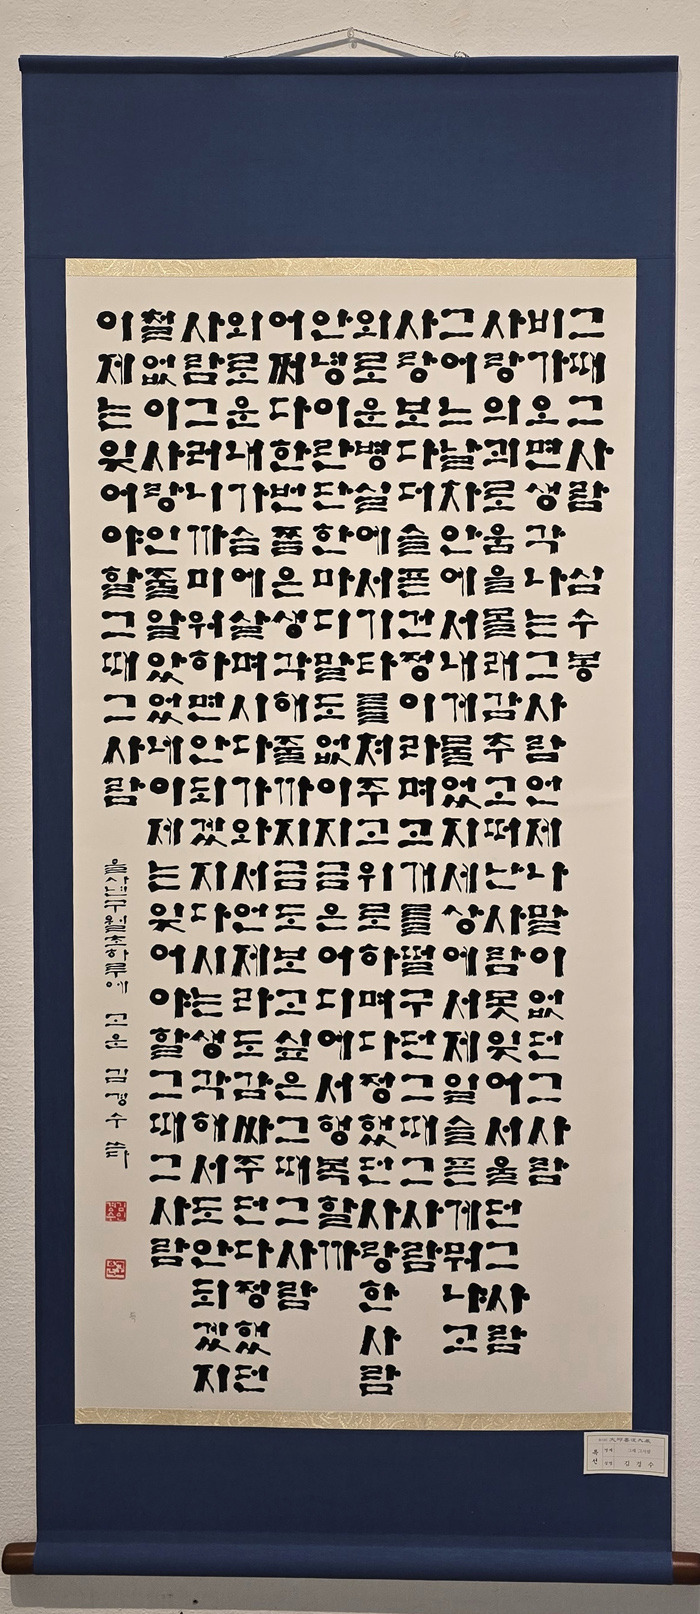 그때그사람 심수봉
비가오면생각나는그사람언제나말이없던그사람
사랑의괴로움을몰래감추고떠난사람못잊어서울던그사람
그어느날차안에서내게물었지세상에서제일슬픈게뭐냐고
사랑보다더슬픈건정이라며고개를떨구던그때그사람
외로운병실에서기타를쳐주고위로하며다정했던사랑한사람
안녕이란단한마디말도없이지금은어디에서행복할까
어쩌다한번쯤은생각해줄까지금도보고싶은그때그사람
외로운내가슴에살며시다가와서언제라도감싸주던다정했던
사람그러니까미워하면안되겠지다시는생각해서도안되겠지
철없이사랑인줄알았었네이제는잊어야할그때그사람
이제는잊어야할그때그사람
을사년구월초하루에 고운 김경수 쓰다
특선
김경수